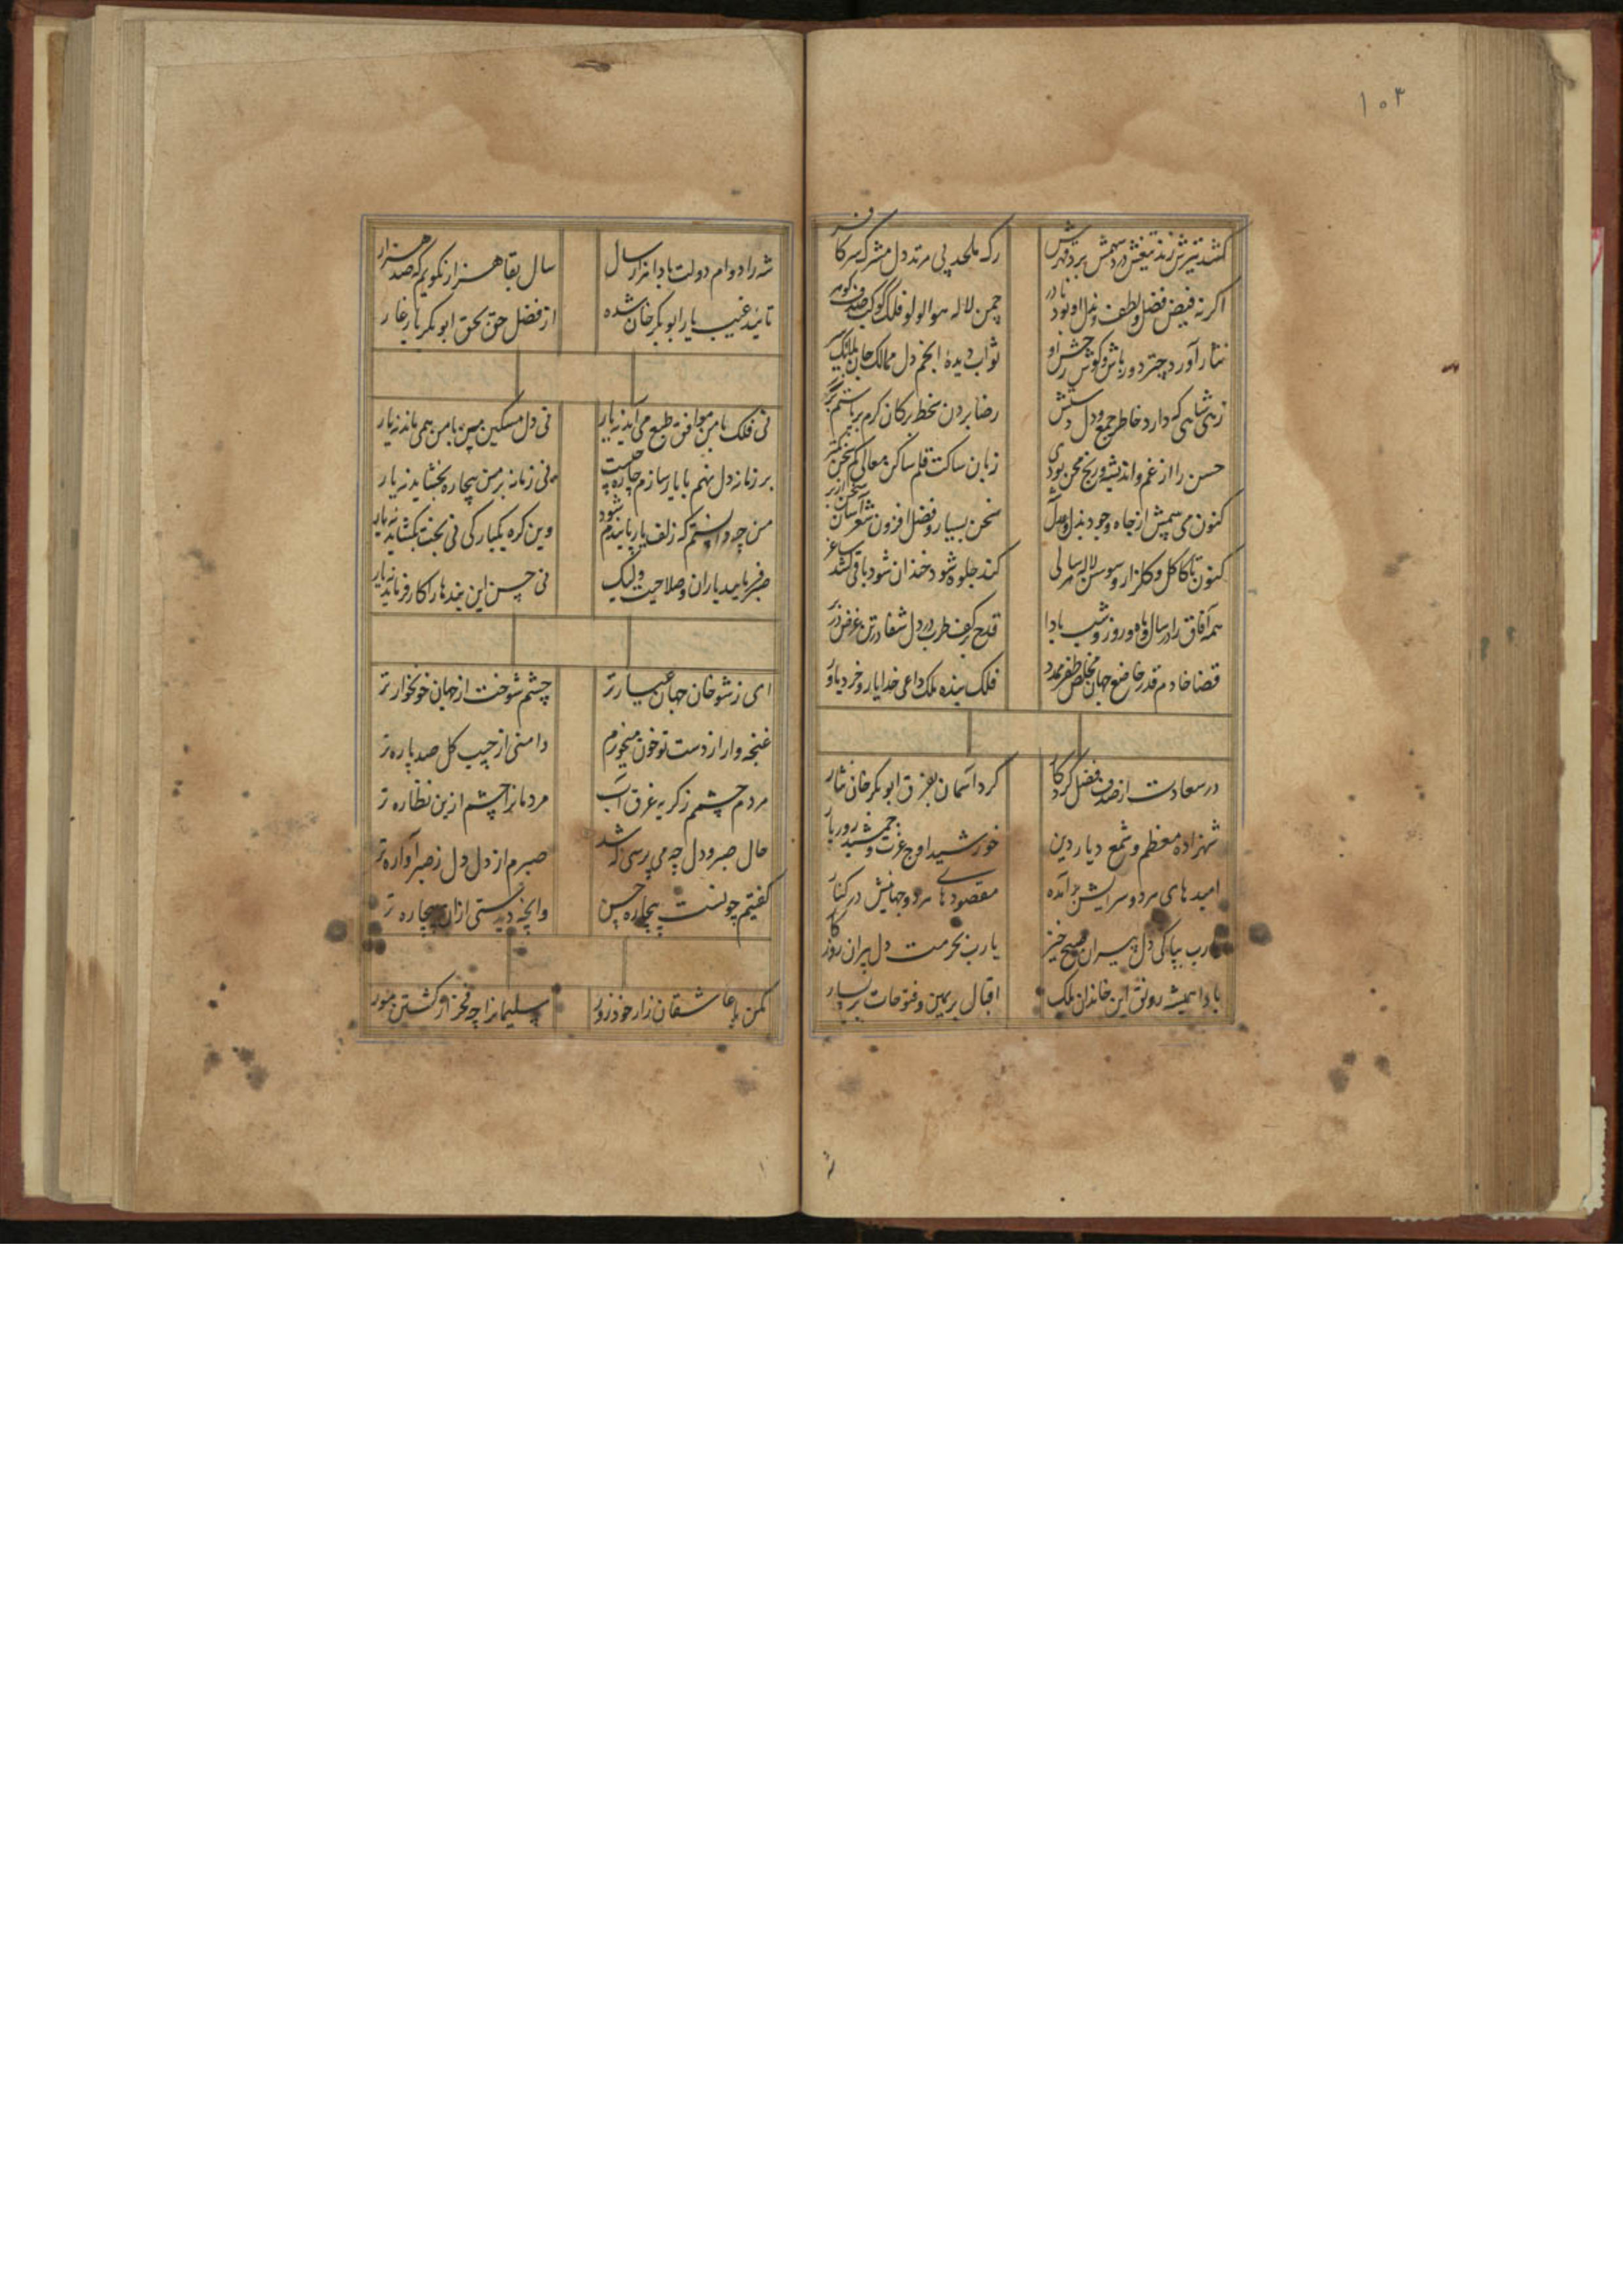 ۱۰۳
کشد تیرش زند تیغش درد سهمش برد قهرش
رک ملحد پی مرتد دل مشرک سر کافر
اکر نه فیض فضل و لطف و بذل او بود نادر
چمن لاله هوا لولو فلک کوکب صدف کوهر
نثار آورد چتر و دورباش و کوش و رخش او
ثواب دیده انجم دل ممالک جان ملائک سر
زهی شاهی که دارد خاطر جمع و دل و دستش
رضا بردن بخط برکان کرم بر
حسن را از غم و اندیشه و رنج و محن بودی
زبان ساکت قلم ساکن معالی کم سخن کمتر
کنون می بینمش از جاه وجود و بذل
سخن بسیار و فضل افزون شعر آسان
کنون تا کاکل و کلزار و سوسن لاله هر سالی
کند جلوه شود خندان شود باقی کشد ساغر
همه آفاق را در سال و ماه و روز و شب بادا
قدح بر کف طرب در دل شفا در تن غرض در بر
قضا خادم قدر خاضع جهان مخلص ظفر همدم
فلک بنده ملک داعی خدا یار و خرد یاور
در سعادت از صدف فضل کردکار
کرد آسمان بفرق ابوبکر خان نثار
شهزاده معظم و شمع دیار دین
خورشید اوج عزت و جمشید روزبار
امیدهای هر دو سرایش بر آمده
مقصودهای هر دو جهانیش در کنار
یارب بپاکی دل پیران صبح خیز
یارب بحرمت دل پیران روزکار
بادا همیشه رونق این خاندان ملک
اقبال بر یمین و فتوحات بر یسار
شه را دوام دولت بادا هزار سال
سال بقا هزار نکویم که صد هزار
تائید غیب یار ابوبکر خان شده
از فضل حق بحق ابوبکر یار غار
نی فلک با من موافق طبع می آید نه یار
نی دل مسکین من با من همی ماند نه یار
بر زمانه دل نهم با یار سازم چاره چیست
نی زمانه بر من بیچاره بخشاید نه یار
من چه دانستم که زلف یار پابندم شود
وین کره یکبارکی نی بخت بکشاید نه یار
صبر فرمایید یاران و صلاحیت ولیک
نی حسن این پندها را کار فرماید نه یار
ای ز شوخان جهان عیارتر
چشم شوخت از جهان خونخوارتر
غنچه وار از دست تو خون میخورم
دامنی از جیب کل صد پاره تر
مردم چشمم ز کریه غرق آب
مردمانرا چشم ازین نظاره تر
حال صبر و دل چه می پرسی که شد
صبرم از دل دل ز صبر آواره تر
کفتیم چونست بیچاره حسن
وانچه دیدستی ازان بیچاره تر
مکن با عاشقان زار خود زور
سلیمانرا چه فخر از کشتن مور